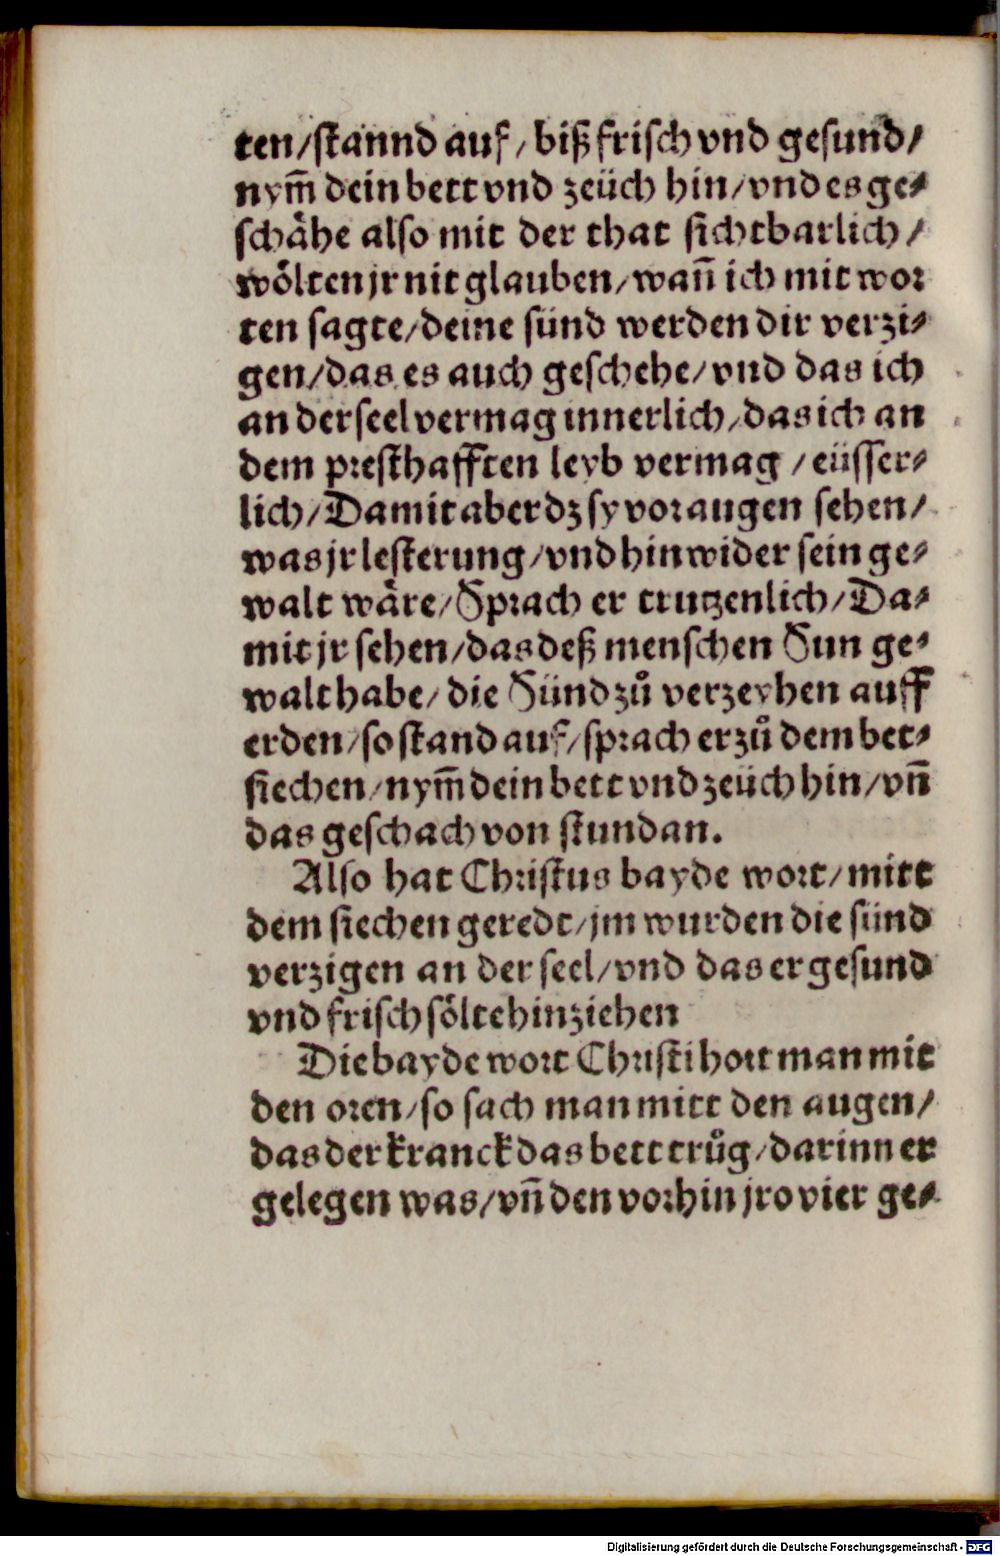 ten/stannd auf/biß frisch vnd gesund/
nym̄ dein bett vnd zeüch hin/vnd es ge⸗
schåhe also mit der that sichtbarlich/
wölten jr nit glauben/wañ ich mit wor
ten sagte/deine sünd werden dir verzi⸗
gen/das es auch geschehe/vnd das ich
an der seel vermag innerlich/das ich an
dem presthafften leyb vermag/eüsser⸗
lich/Damit aber dz sy vor augen sehen/
was jr lesterung/vnd hinwider sein ge⸗
walt wåre/Sprach er trutzenlich/Da⸗
mit jr sehen/das deß menschen Sun ge⸗
walt habe/die Sünd zů verzeyhen auff
erden/so stand auf/sprach er zů dem bet⸗
siechen/nym̄ dein bett vnd zeüch hin/vñ
das geschach von stundan.
Also hat Christus bayde wort/mitt
dem siechen geredt/jm wurden die sünd
verzigen an der seel/vnd das er gesund
vnd frisch sölte hinziehen
Die bayde wort Christi hort man mit
den oren/so sach man mitt den augen/
das der kranck das bett trůg/darinn er
gelegen was/vñ den vorhin jro vier ge⸗
Digitalisierung gefördert durch die Deutsche Forschungsgemeinschaft - DFG